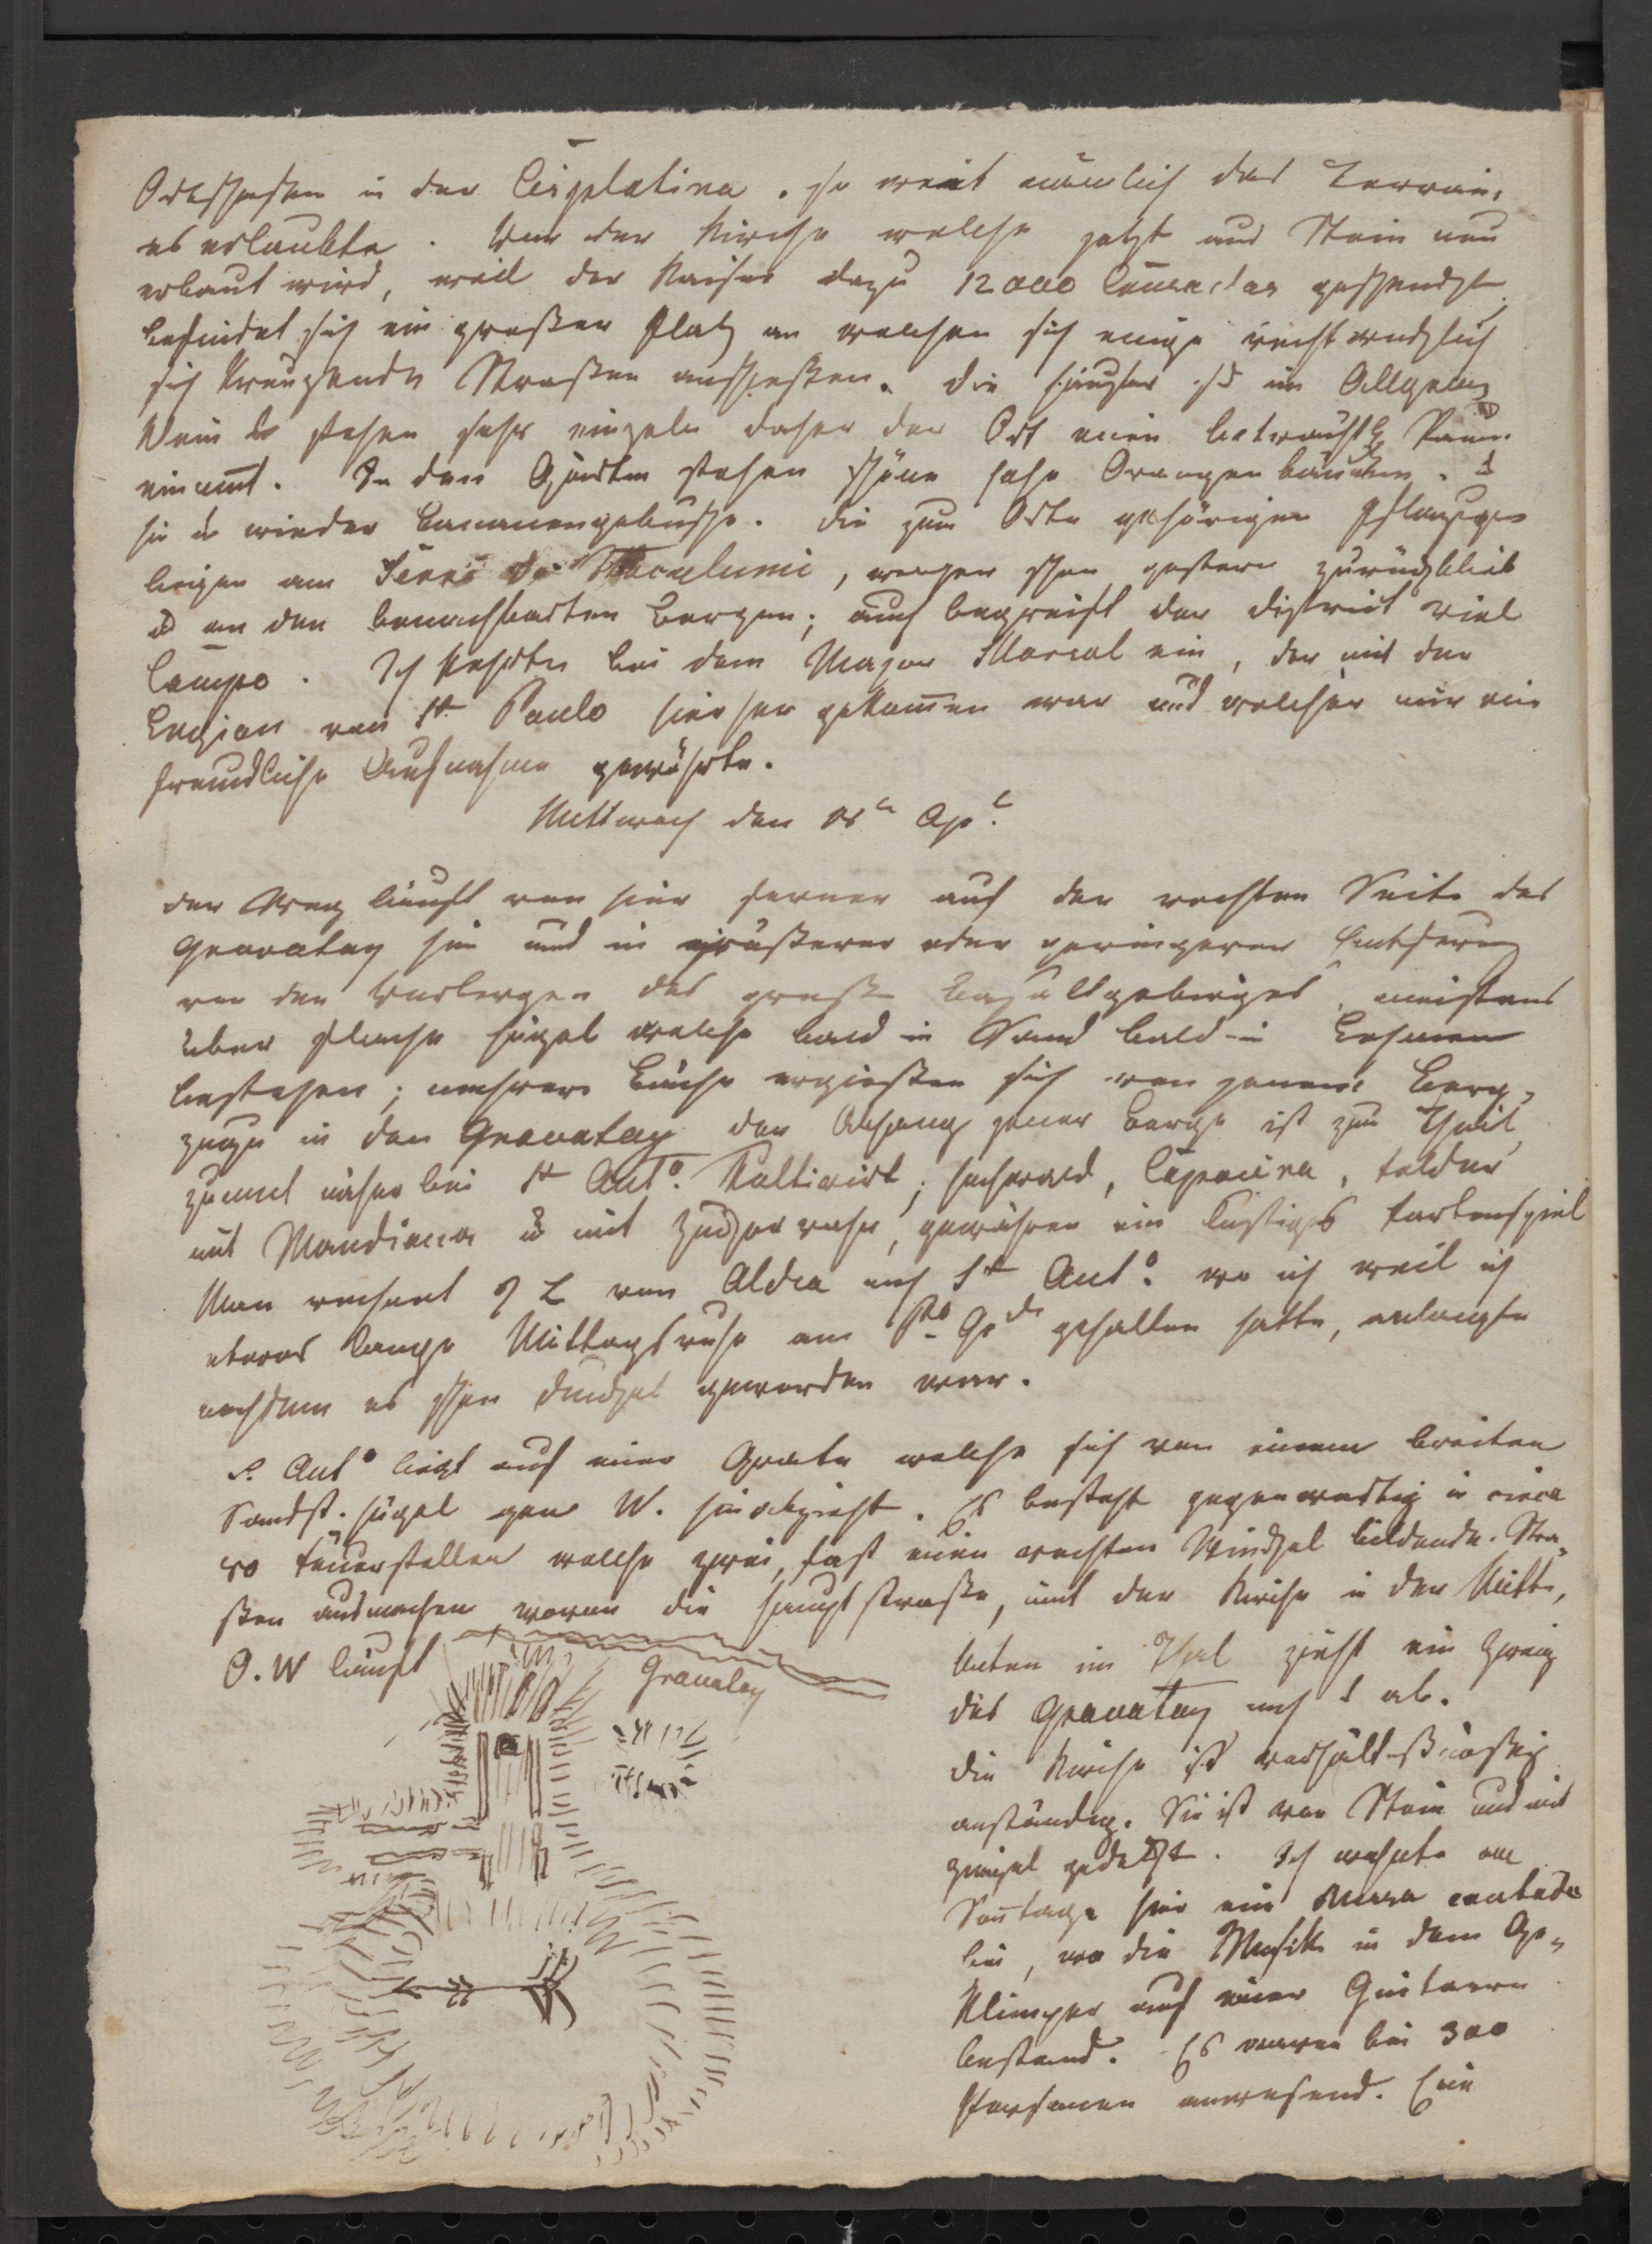 Ortschaften in der Cisplatina, so weit nämlich das Terrain
es erlaubte. Vor der Kirche welche jetzt aus Stein neu
erbaut wird, weil der Kaiser dazu 12000 Cruzados geschenkt
befindet sich ein großer Platz an welchen sich einige rechtwinklich
sich kreuzende Straßen anschließen. Die Häuser sd im Allgem.
klein u stehen sehr einzeln daher der Ort einen beträchtl. Raum
einnimt. In den Gärten stehen schöne hohe Orangenbäume, u
hie u wieder Bananengebüsche. Die zum Orte gehörigen Pflanzungen
liegen am Serro de Itacalumi, welcher schon gestern zurückblieb
u an den benachbarten Bergen; auch begreift der District viel
Campo. Ich kehrte bei dem Major Marcal ein, der mit der
Legion von St. Paulo hierher gekommen war und welcher mir eine
freundliche Aufnahme gewährte.
Mittwoch den Apl.
Der Weg läuft von hier ferner auf der rechten Seite des
Gravatay hin und in größerer oder geringerer Entfernung
von den Vorbergen des großen Basaltgebirges, meistens
über flache Hügel welche bald in Sand bald in Lehmen
bestehen; mehrere Bäche ergießen sich von jenem Berg-
zuge in den Gravatay. Der Abhang jener Berge ist zum Theil,
zumal näher bei St Anto. kultivirt; Hochwald, Capoeira, Felder
mit Mandioca u mit Zuckerrohr, gewähren ein lustiges Farbenspiel
Man rechnet 7 L von Aldea nach St Anto. wo ich weil ich
etwas lange Mittagsruhe am gehalten hatte, anlangte
nachdem es schon dunkel geworden war.
S. Anto liegt auf einer Grate welche sich von einem breiten
Sandst. Hügel gen W. hinabzieht. Es besteht gegenwärtig in circa
Feuerstellen welche zwei, fast einen rechten Winkel bildende Stra-
ßen ausmachen wovon die Hauptstraße, mit der Kirche in der Mitte,
O.W läuft
Gravatay
Unten im Thal zieht ein Zweig
des Gravatay nach S ab.
Die Kirche ist verhältnißmäßig
anständig. Sie ist von Stein und mit
Ziegel gedeckt. Ich wohnte am
Sonntage hier einer Missa cantada
bei, wo die Musik in dem Ge-
klimper auf einer Guitarre
bestand. Es waren bei 300
Personen anwesend. Eine